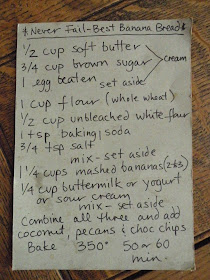 *Never Fail-Best Banana Bread*
1/2 cup soft butter
3/4 cup brown sugar
cream
1 egg beaten
set aside
1 cup flour (whole wheat)
1/2 cup unbleached white flour
1 tsp baking soda
3/4 tsp salt
mix - set aside
1 1/4 cups mashed bananas (2 or 3)
1/4 cup buttermilk or yogurt
or sour cream
mix - set aside
Combine all three and add
coconut, pecans & choc chips
Bake 350° 50 or 60
min.